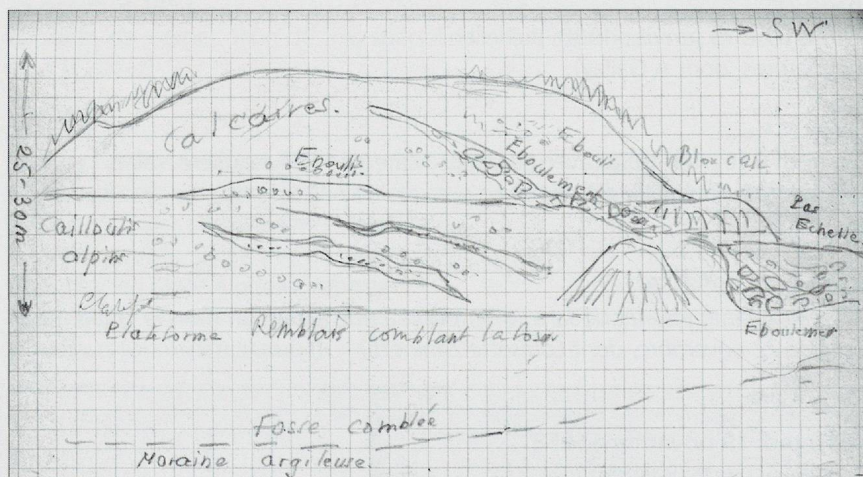 → SW
Calcaires.
Eboulis
Eboulis
Eboulement
Bloc calc
25-30m
Cailloutis
alpins
Pas
Echelle
Plateforme Remblais comblant la fosse
Eboulement
Fosse comblée
Moraine argileuse.